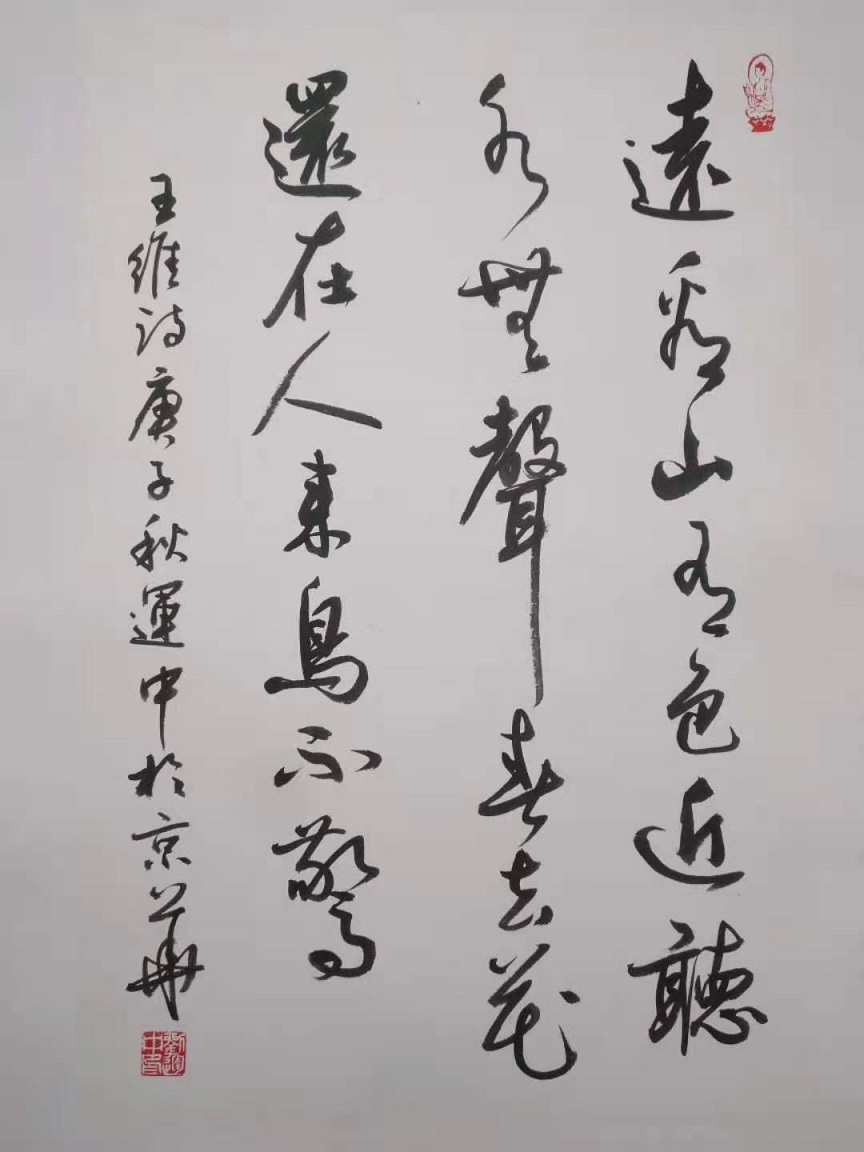 遠看山有色近聽
水無聲春去花
還在人来鳥不驚
王維诗庚子秋運中於京華